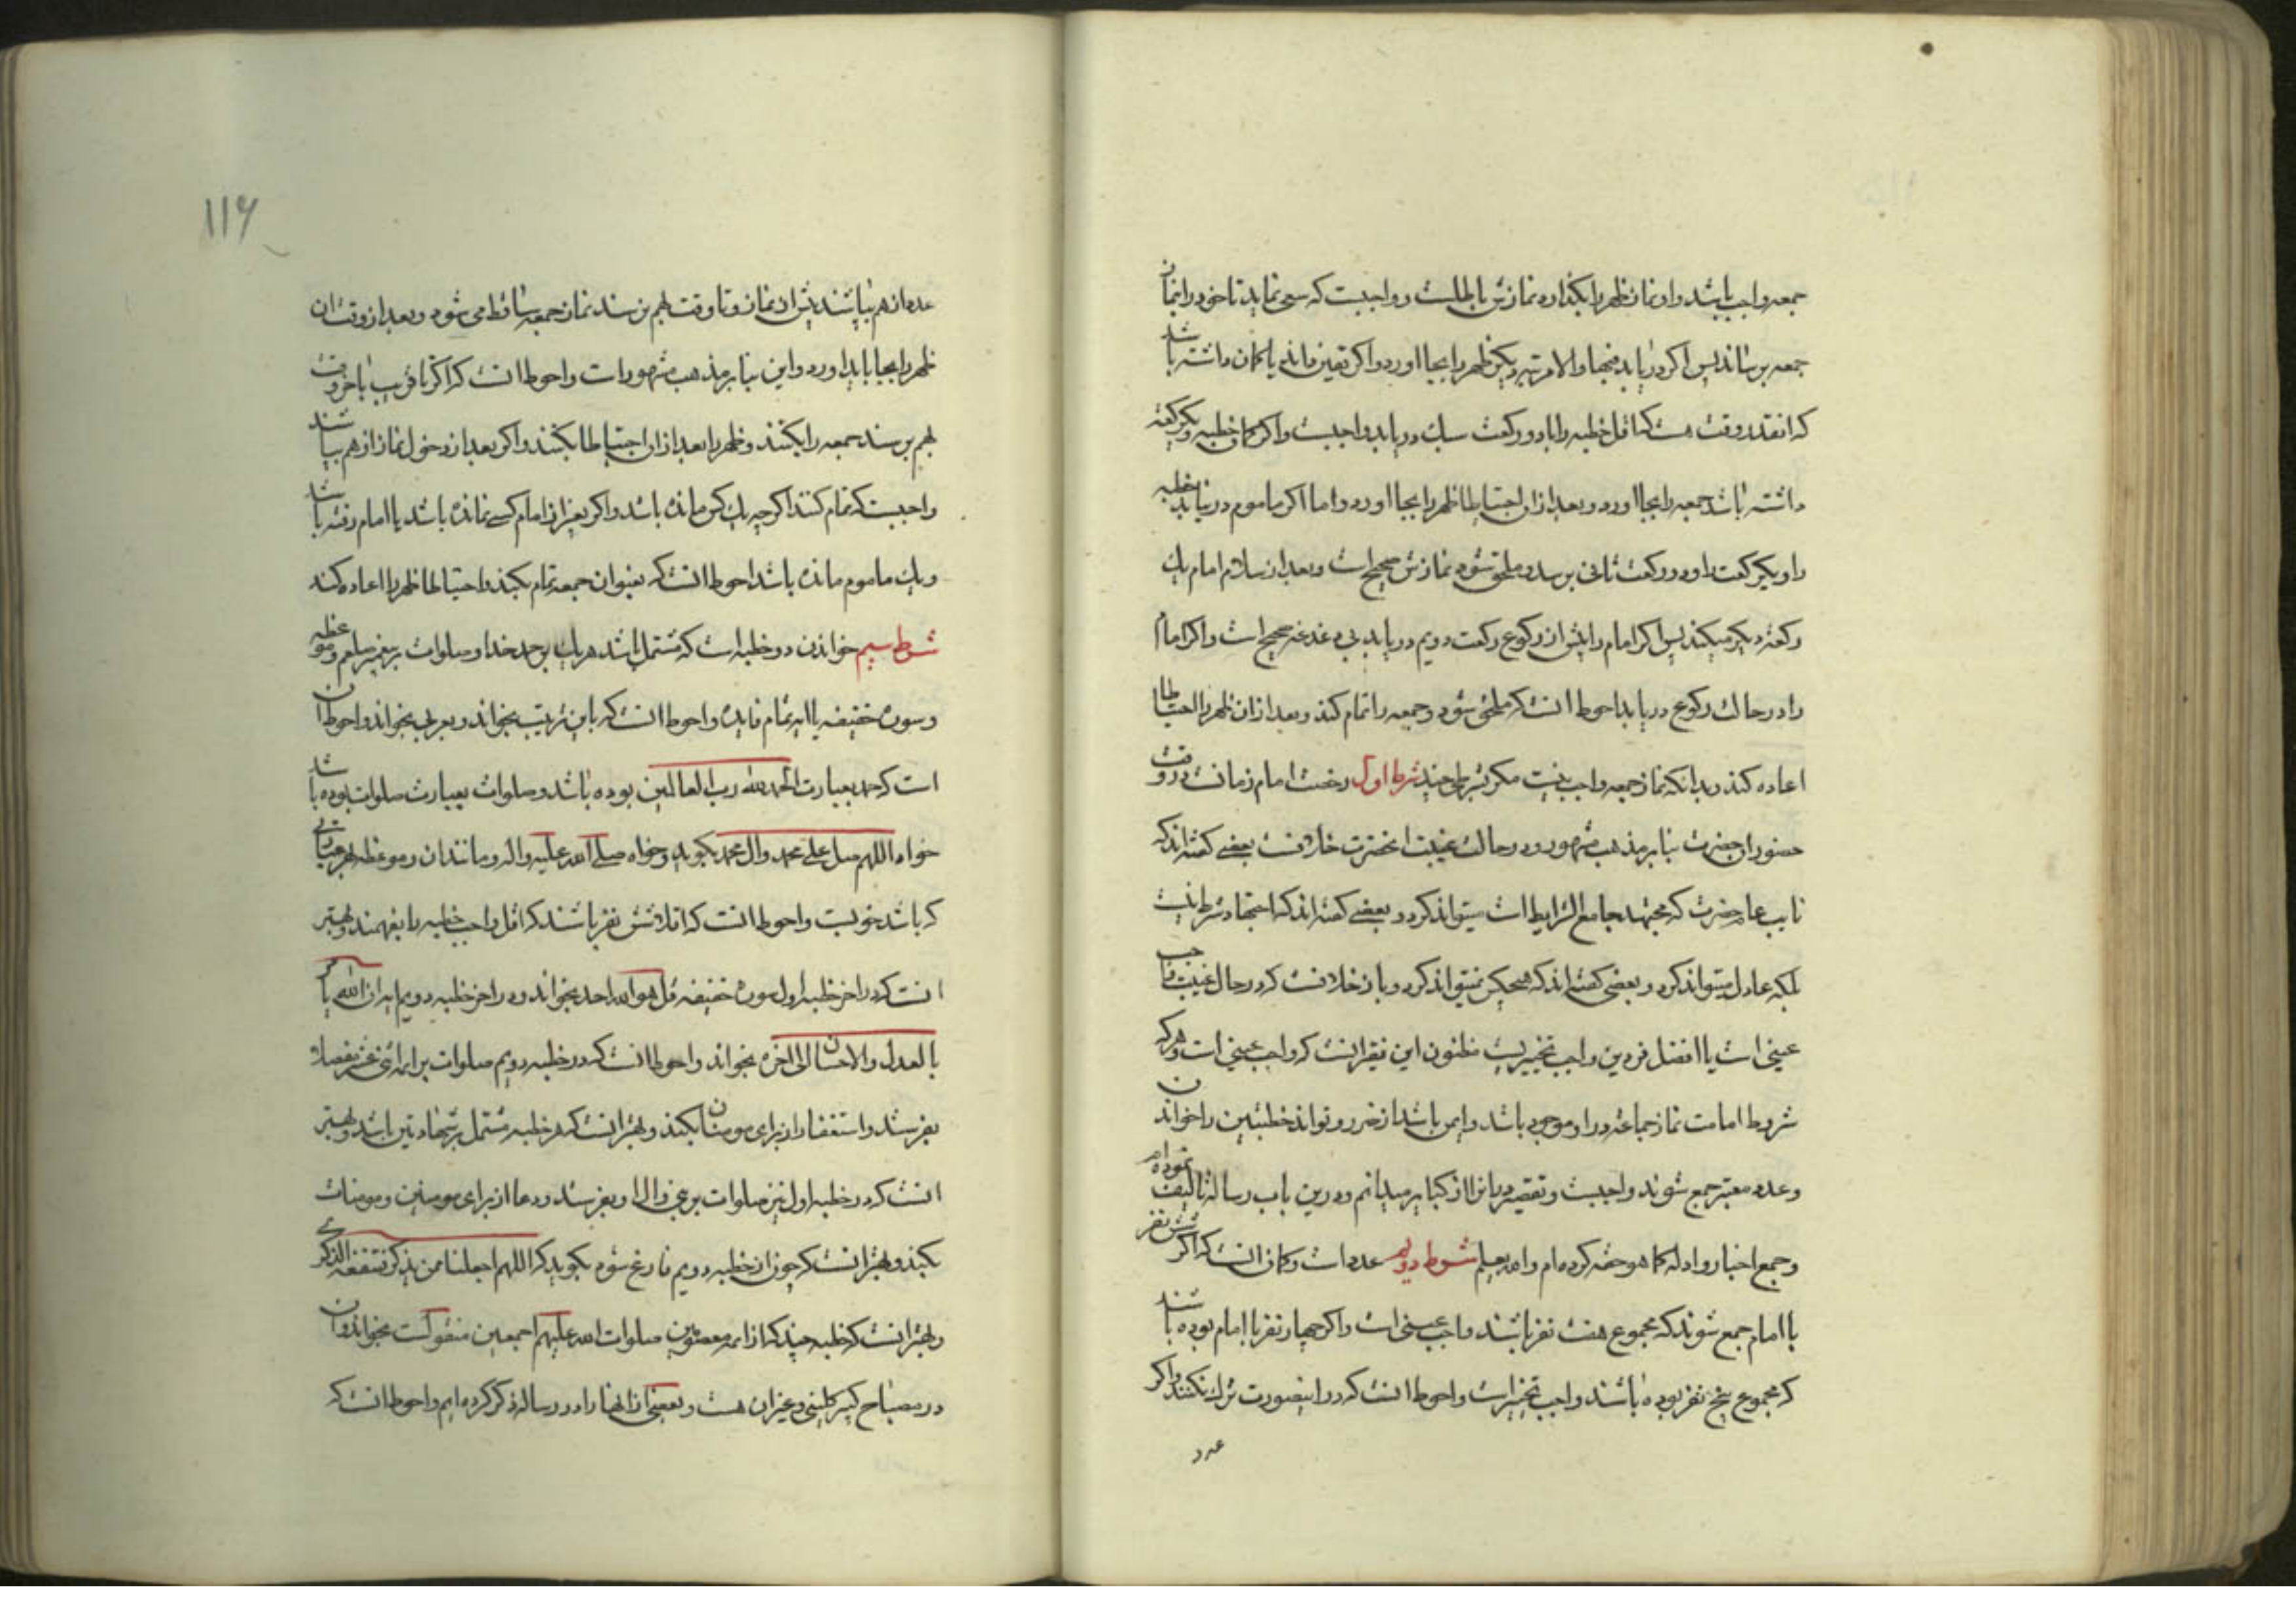 جمعه واجب باشد و او نماز ظهر را بگذارد نمازش باطلست و واجبست که سعی نماید تا خود را بنماز
جمعه برساند پس اگر دریابد فبها و الا مرتبه دیگر ظهر را بجا اورد و اگر یقین نماند یا کمان داشته باشد
که انقدر وقت هست که اقل خطبه را با دو رکعت سبك دریابد واجبست و اگر کمان خطبه و یکرکعت
داشته باشد جمعه را بجا اورد و بعد از ان احتیاطا ظهر را بجا اورد و اما اگر ماموم درنیابد خطبه
را و یکرکعت را و در رکعت ثانی برسد و ملحق شود نمازش صحیح است و بعد از سلام امام یك
رکعت دیگر میکند پس اگر امام را پیش از رکوع رکعت دویم دریابد بی دغدغه صحیح است و اگر امام
را در حالت رکوع دریابد احوط انست که ملحق شود و جمعه را تمام کند و بعد از ان ظهر را احتیاطا
اعاده کند و بدانکه نماز جمعه واجب نیست مکر بشرطی چند شرط اول رخصت امام زمانست در وقت
حضور ان حضرت بنابر مذهب مشهور و در حالت غیبت انحضرت خلافست بعضی کفته اند که
نایب عام حضرت که مجتهد جامع الشرایط است میتواند کرد و بعضی کفته اند که اجتهاد شرط نیست
بلکه عادل میتواند کرد و بعضی کفته اند که هیچکس نمیتواند کرد و باز خلافست که در حال غیبت واجب
عینی است یا افضل فردین واجب تخییریست مظنون این فقیر انست که واجب عینی است و هر که
شروط امامت نماز جماعه در او موجود باشد و ایمن باشد از ضرر و تواند خطبتین را خواندن
و عدد معتبر جمع شوند واجبست و تقصیر در انرا از کبایر میدانم و درین باب رساله تالیف نموده ام
و جمع اخبار و ادله کما هو حقه کرده ام و الله یعلم شرط دویم عدد است و کمان انست که اکر شش نفر
با امام جمع شوند که مجموع هفت نفر باشند واجب عینی است و اکر چهار نفر با امام بوده باشند
که مجموع پنج نفر بوده باشند واجب تخییریست و احوط انست که در اینصورت ترك نکنند و اکر
عدد
۱۱۶
عدد از هم بپاشند پیش از نماز و تا وقت بهم نرسند نماز جمعه ساقط می شود و بعد از وقت ان
ظهر را بجا باید اورد و این بنابر مذهب مشهور است و احوط انست که اکر تا قریب باخر وقت
بهم برسند جمعه را بکنند و ظهر را بعد از ان احتیاطا بکنند و اکر بعد از دخول نماز از هم بپاشند
واجبست که تمام کنند اکر چه یك کس مانده باشد و اکر بغیر از امام کسی نمانده باشد یا امام رفته باشد
و یك ماموم مانده باشد احوط انست که بعنوان جمعه تمام بکند و احتیاطا ظهر را اعاده کند
شرط سیم خواندن دو خطبه است که مشتمل باشد هر یك بر حمد خدا و صلوات بر پیغمبر صلعم و موعظه
و سوره خفیفه یا ایه تمام فایده و احوط انست که باین ترتیب بخواند و بعربی بخواند و احوط ان
است که حمد بعبارت الحمد لله رب العالمین بوده باشد و صلوات بعبارت صلوات بوده باشد
خواه اللهم صل علی محمد و ال محمد بکوید و خواه صلی الله علیه و اله و مانند ان و موعظه بهر عبارتی
که باشد خوبست و احوط انست که اقلا شش نفر باشند که اقل واجب خطبه را بفهمند و بهتر
انست که در اخر خطبه اول سوره خفیفه قل هو الله احد بخواند و در اخر خطبه دویم ایه ان الله یامر
بالعدل و الاحسان الی اخره بخواند و احوط انست که در خطبه دویم صلوات بر ایمه اثنی عشر مفصلا
بفرستد و استغفار از برای مومنان بکند و بهتر انست که هر خطبه مشتمل بر شهادتین باشد و بهتر
انست که در خطبه اول نیز صلوات بر نبی و ال او بفرستد و دعا از برای مومنین و مومنات
بکند و بهتر انست که چون از خطبه دویم فارغ شود بکوید که اللهم اجعلنا ممن یذکر فتنفعه الذکری
و بهتر انست که خطبه چند که از ایمه معصومین صلوات الله علیهم اجمعین منقولست بخواند و ان
در مصباح کبیر کلینی و غیر ان هست و بعضی از انها را در رساله ذکر کرده ایم و احوط انست که